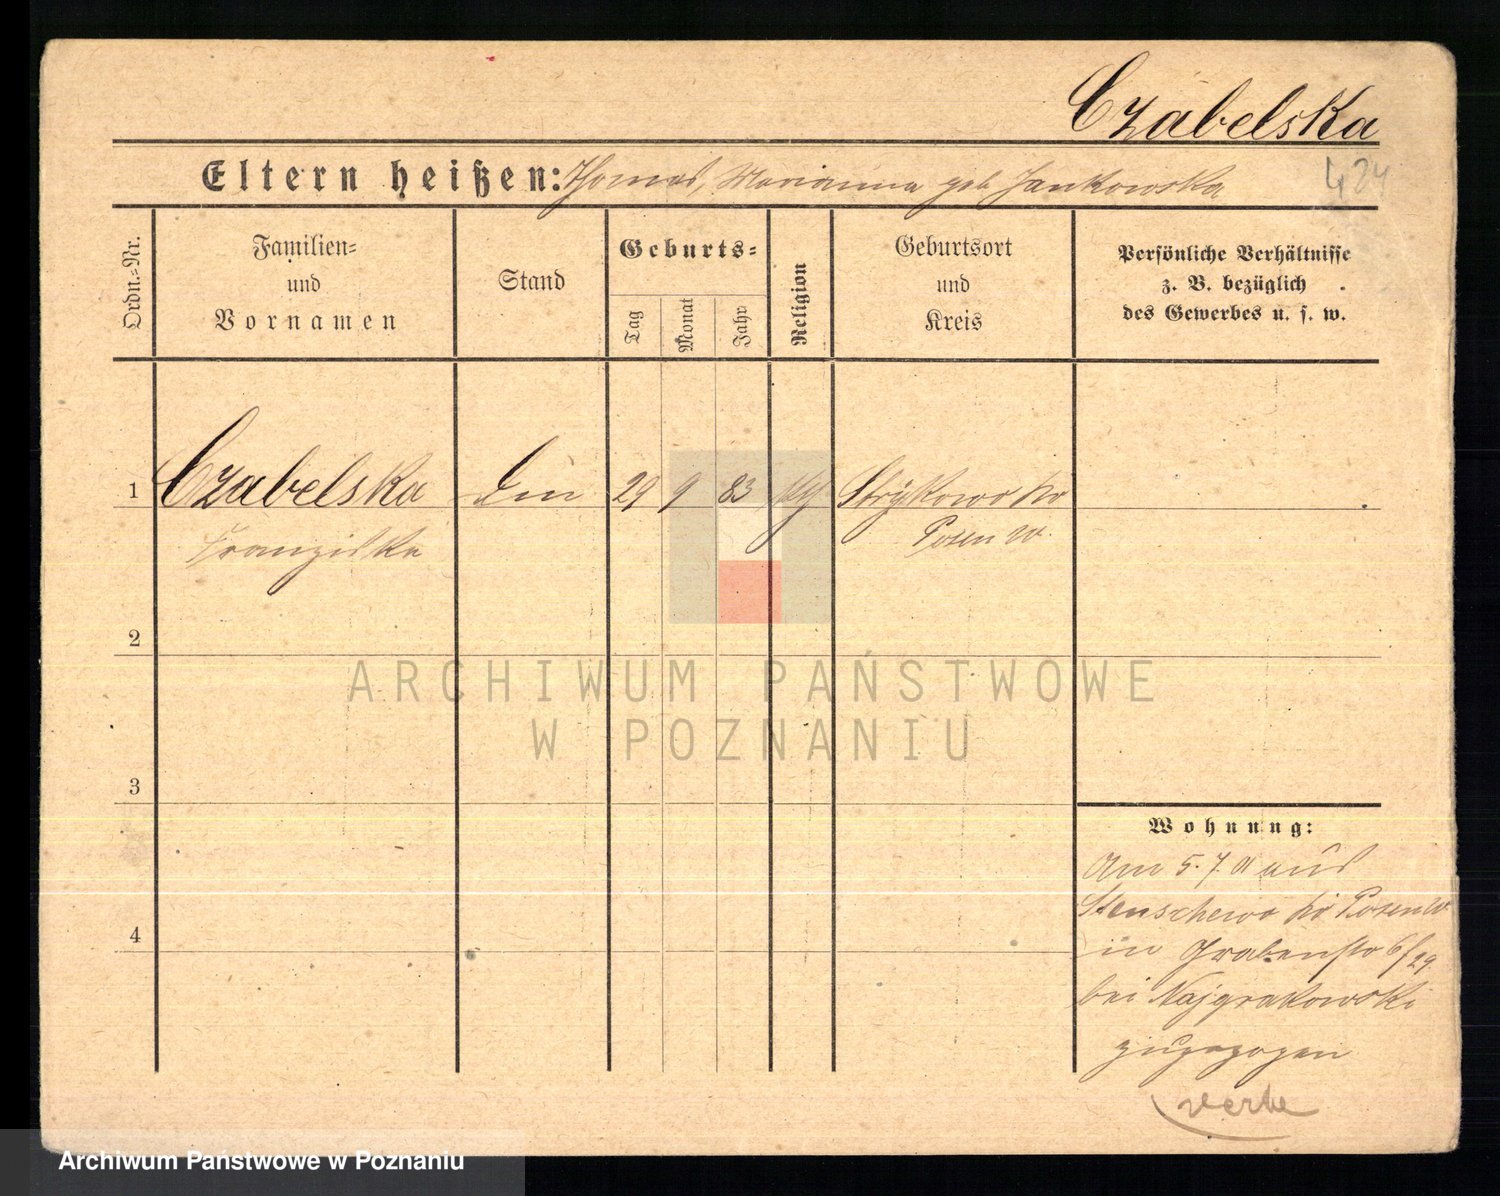 Czabelska
Eltern heißen: Thomas, Marianna geb Jankowska
424
Ordn.=Nr.
Familien=
und
Vornamen
Stand
Geburts=
Tag
Monat
Jahr
Religion
Geburtsort
und
Kreis
Persönliche Verhältnisse
z. B. bezüglich
des Gewerbes u. s. w.
1 Czabelska 29 9 83 Strykowo Kr
Franziska Posen W.
2
ARCHIWUM PAŃSTWOWE
W POZNANIU
3
4
Wohnung:
Am 5. 7. 01 aus
Stenschewo Kr Posen W
in Grabenstr 6/29.
bei Najgrakowski
zugezogen
Archiwum Państwowe w Poznaniu